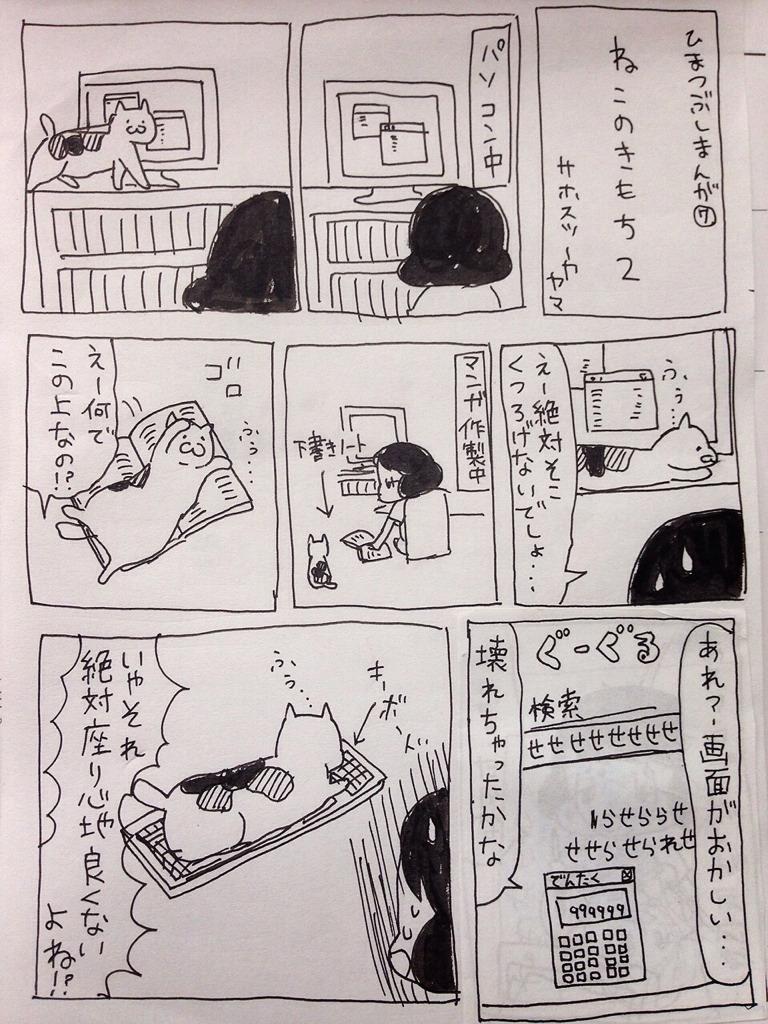 ひまつぶしまんが⑦
ねこのきもち2
サホスツーカ
ヤマ
パソコン中
ふぅ…
えー絶対そこ
くつろげないでしょ…
マンガ作製中
下書きノート
ゴロ
ふぅ…
えー何で
この上なの!?
あれー?画面がおかしい…
ぐーぐる
検索
せせせせせせせせ
せせらせられせ
でんたく
999999
壊れちゃったかな
キーボード
ふぅ…
いやそれ
絶対座り心地良くない
よね!?